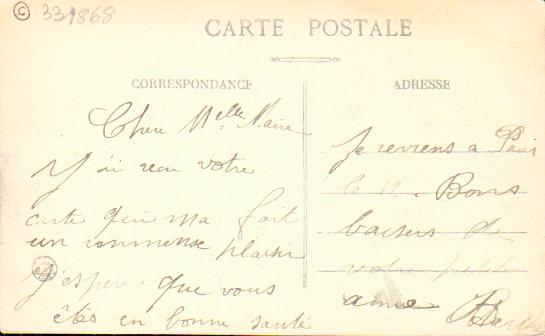 © 331868
CARTE POSTALE
CORRESPONDANCE
ADRESSE
Chere Melle Marie
j'ai recu votre
carte qui ma fait
un immense plaisir
j'espere que vous
étes en bonne santé
Je reviens a Paris
le 12. Bons
baisers de
votre petite
amie